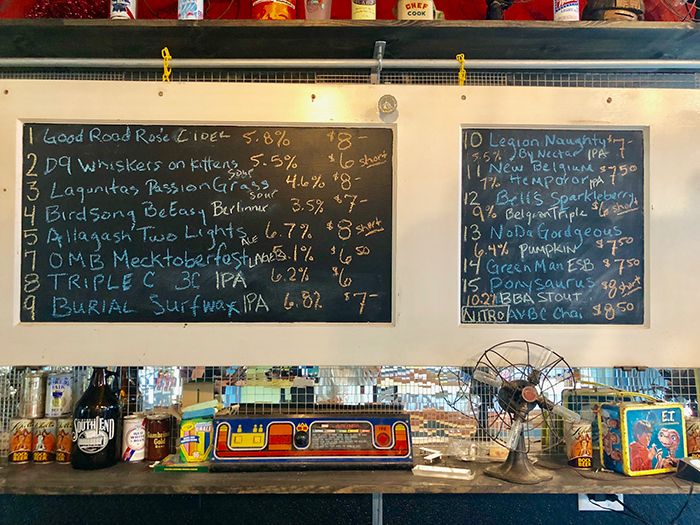 CHEF
COOK
1 Good Road Rosé CIDER 5.8% $8-
2 D9 Whiskers on Kittens sour 5.5% $6 short
3 Lagunitas Passion Grass sour 4.6% $8-
4 Birdsong BeEasy Berliner 3.5% $7-
5 Allagash Two Lights ALE 6.7% $8 short
7 OMB Mecktoberfest LAGER 5.1% $6.50
8 TRIPLE C 3C IPA 6.2% $6
9 BURIAL Surfwax IPA 6.8% $7-
10 Legion Naughty $7-
5.5% By Nectar IPA
11 New Belgium $7.50
7% Hemporor IPA
12 Bell's Sparkleberry
9% Belgian Triple $6 short
13 NoDa Gordgeous
6.4% PUMPKIN $7.50
14 Green Man ESB $7.50
15 Ponysaurus $8 short
10.2% BBA STOUT
NITRO AVBC Chai $8.50
SOUTH END
E.T.
BOCK
BEER